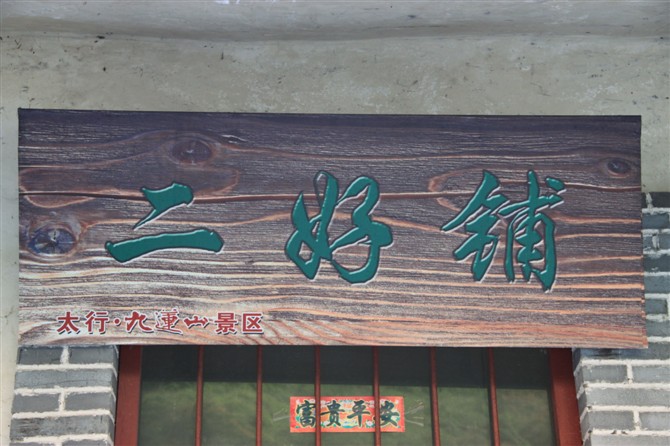 二好铺
太行·九莲山景区
富贵平安